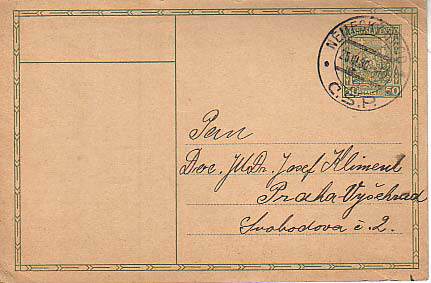 NĚMECKÝ
Č.S.P.
50
Pan
Doc. JUDr. Josef Kliment
Praha-Vyšehrad
Svobodova č. 2.